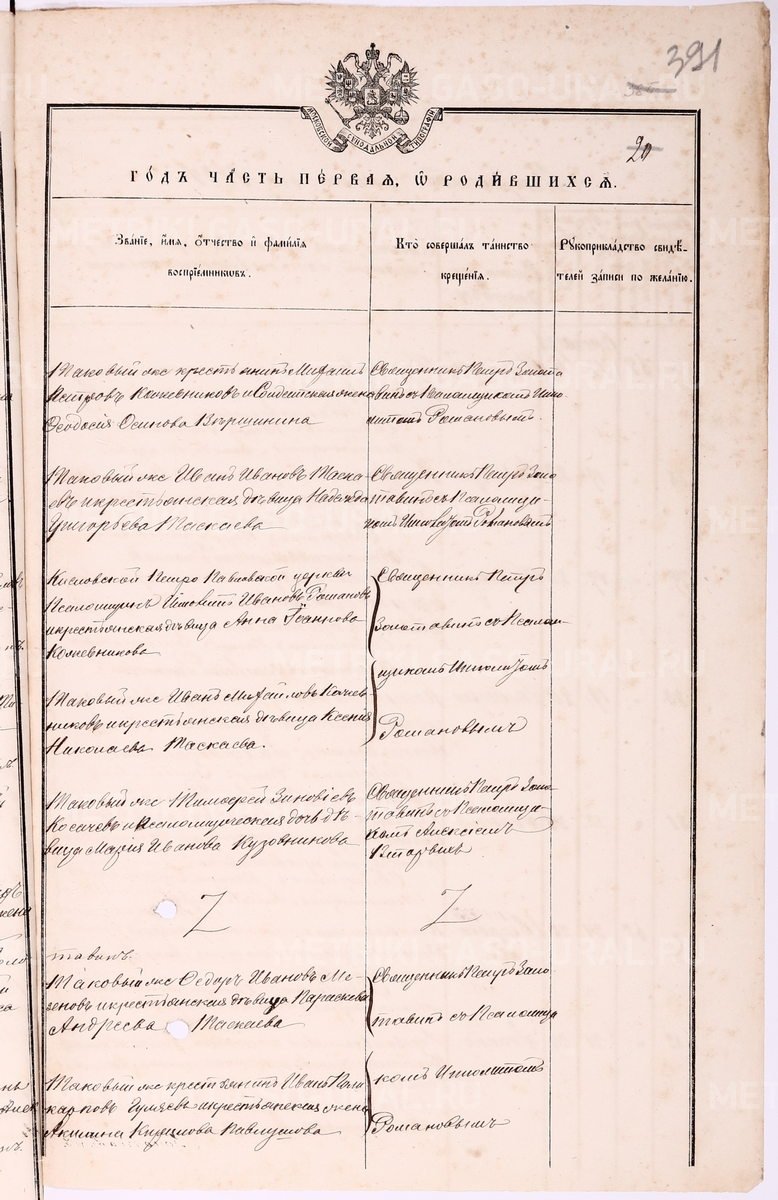 391
20
МОСКОВСКОЙ СѴНОДАЛЬНОЙ ТИПОГРАФІИ
ГО́ДЪ ЧА́СТЬ ПЕ́РВАЯ, Ѡ РОДИ́ВШИХСѦ.
Зва́ніе, и́мя, о́тчество и҆ фами́лія
воспріе́мниковъ.
Кто̀ соверша́лъ та́инство
креще́нія.
Рꙋкоприкла́дство свидѣ́-
телей за́писи по жела́нію.
Таковый же крестьянинъ Михаилъ
Петровъ Кожевниковъ и Солдатская жена
Ѳеодосія Осипова Вершинина
Священникъ Петръ Золота
винъ съ Псаломщикомъ Иппо
литомъ Романовымъ.
Таковый же Иванъ Ивановъ Таска
евъ и крестьянская дѣвица Надежда
Григорьева Таскаева
Священникъ Петръ Золо
тавинъ съ Псаломщи
комъ Ипполитомъ Романовымъ
Кисловской Петро Павловской церкви
Псаломщикъ Ипполитъ Ивановъ Романовъ
и крестьянская дѣвица Анна Іоаннова
Кожевникова
Священникъ Петръ
Золотавинъ съ Псалом
щикомъ Ипполитомъ
Романовымъ
Таковый же Иванъ Михайловъ Кожев
никовъ и крестьянская дѣвица Ксенія
Николаева Таскаева.
Таковый же Тимоѳей Зиновіевъ
Косачевъ и Псаломщическая дочь дѣ-
вица Марія Иванова Кузовникова
Священникъ Петръ Золо
тавинъ съ Псаломщи
комъ Алексіемъ
Вторыхъ
Z
Z
тавинъ.
Таковый же Ѳедоръ Ивановъ Ме-
зеновъ и крестьянская дѣвица Параскева
Андреева Таскаева
Священникъ Петръ Золо
тавинъ съ Псаломщи
Таковый же крестьянинъ Иванъ Поли
карповъ Гуляевъ и крестьянская жена
Акилина Кирилова
комъ Ипполитомъ
Романовымъ